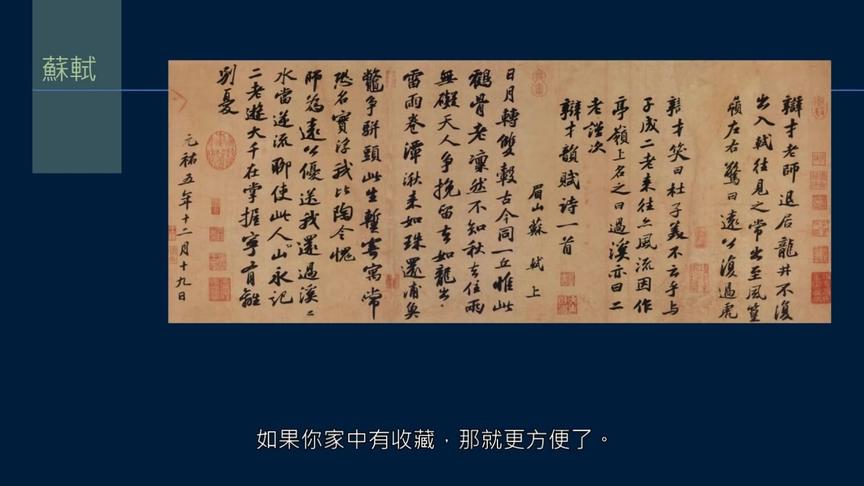 蘇軾
辯才老師退居龍井不復
出入軾往見之常出至風篁
嶺左右驚曰遠公復過虎
辯才笑曰杜子美不云乎與
子成二老來往亦風流因作
亭嶺上名之曰過溪亦曰二
老謹次
辯才韻賦詩一首
眉山蘇軾上
日月轉雙轂古今同一丘惟此
鶴骨老凜然不知秋去住兩
無礙天人爭挽留去如龍出
雷雨卷潭湫来如珠還浦魚
鼈爭駢頭此生暫寄寓常
恐名實浮我比陶令愧
師為遠公優送我還過溪溪
水當逆流聊使此人山永記
二老遊大千在掌握寧有離
別憂
元祐五年十二月十九日
如果你家中有收藏，那就更方便了。